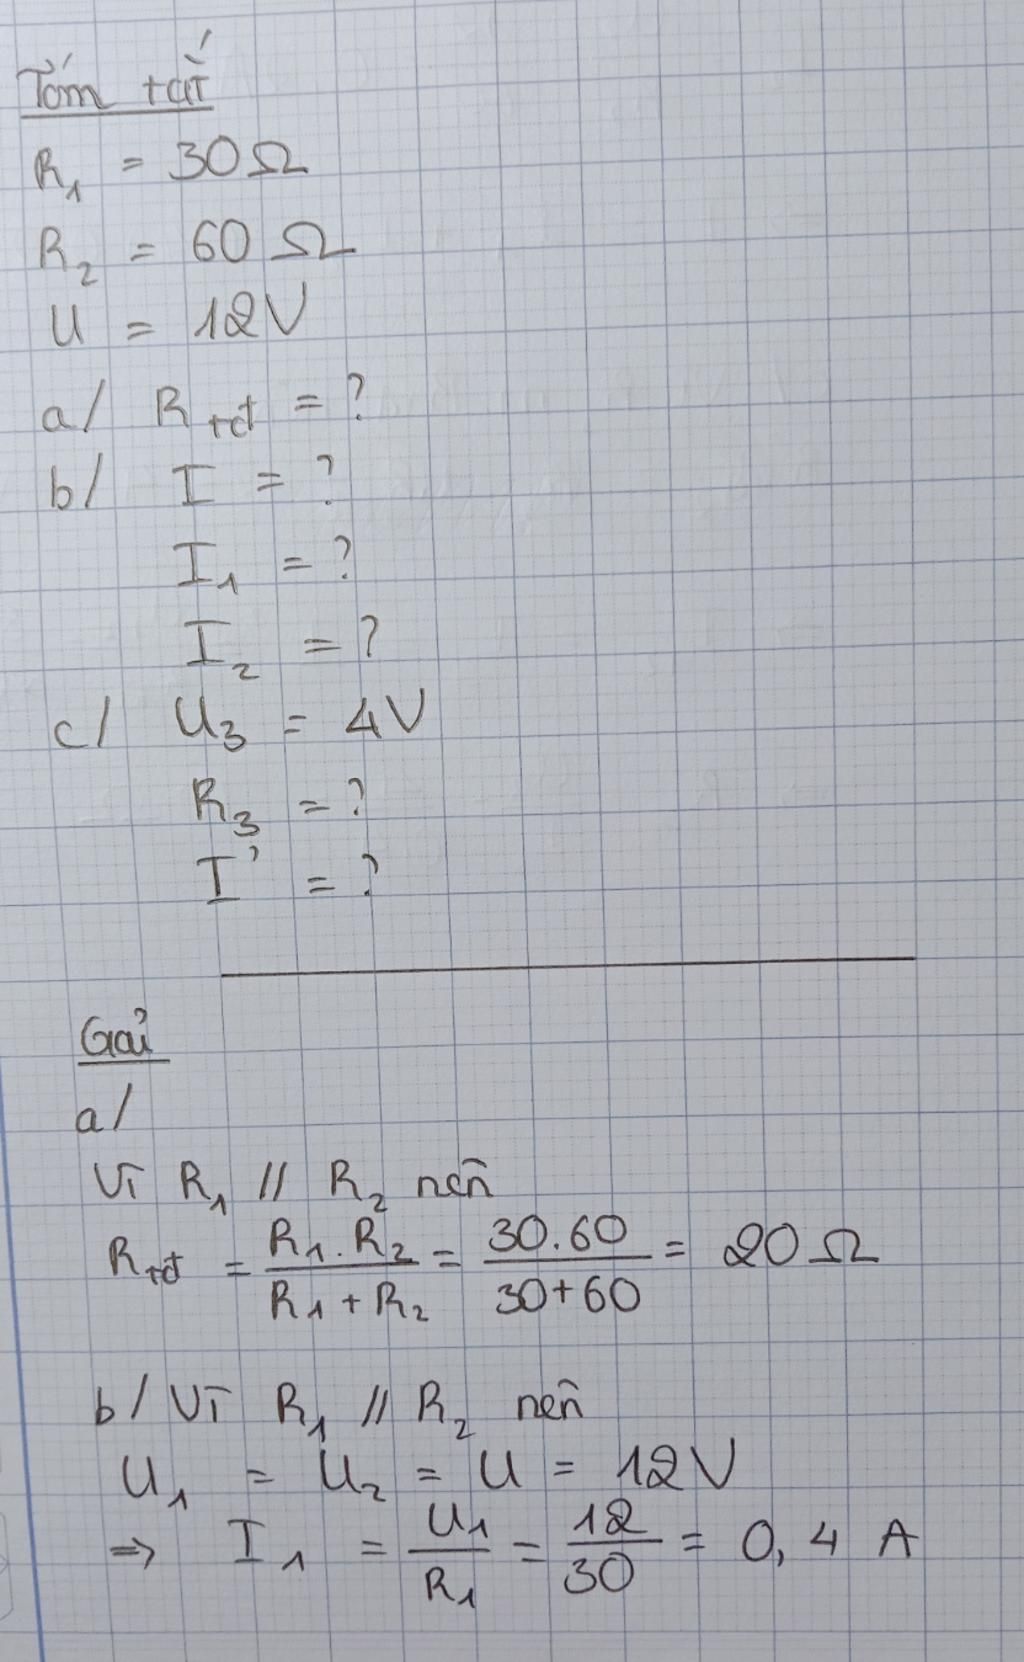 Tóm tắt
R₁ = 30Ω
R₂ = 60Ω
U = 12V
a/ R_tđ = ?
b/ I = ?
I₁ = ?
I₂ = ?
c/ U₃ = 4V
R₃ = ?
I' = ?
Giải
a/
Vì R₁ // R₂ nên
R_tđ = (R₁.R₂)/(R₁+R₂) = (30.60)/(30+60) = 20Ω
b/ Vì R₁ // R₂ nên
U₁ = U₂ = U = 12V
⇒ I₁ = U₁/R₁ = 12/30 = 0,4 A